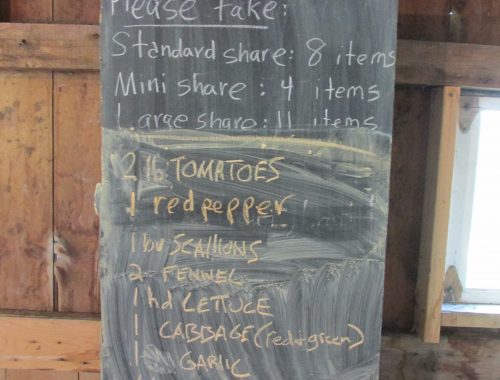 Please take:
Standard share: 8 items
Mini share: 4 items
Large share: 11 items
2 lb TOMATOES
1 red pepper
1 bu SCALLIONS
2 FENNEL
1 hd LETUCE
1 CABBAGE (red+green)
1 GARLIC